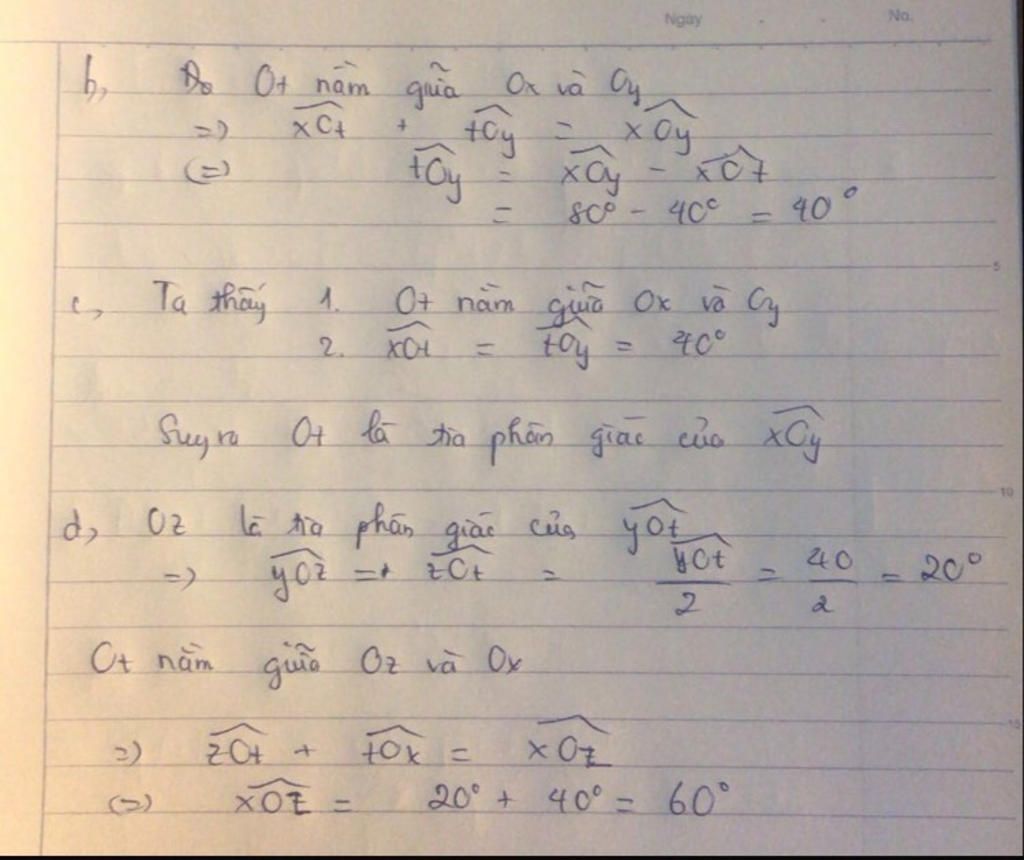 Ngày . . No.
b, Do Ot nằm giữa Ox và Oy
=> xOt + tOy = xOy
<=> tOy = xOy - xOt
= 80° - 40° = 40°
5
c, Ta thấy 1. Ot nằm giữa Ox và Oy
2. xOt = tOy = 40°
Suy ra Ot là tia phân giác của xOy
10
d, Oz là tia phân giác của yOt
=> yOz = zOt = yOt/2 = 40/2 = 20°
Ot nằm giữa Oz và Ox
15
=> zOt + tOx = xOz
<=> xOz = 20° + 40° = 60°